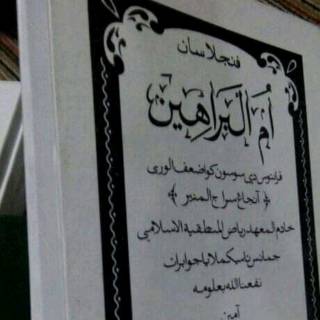 فنجلاسان
أم البراهين
فراتوس دي سوسون كو اضعف الورى
﴿ آنجاغ سراج المنير ﴾
خادم المعهد رياض المنطقية الاسلامي
جمانس تاسيكملايا جوا بارات
نفعنا الله بعلومه
آمين